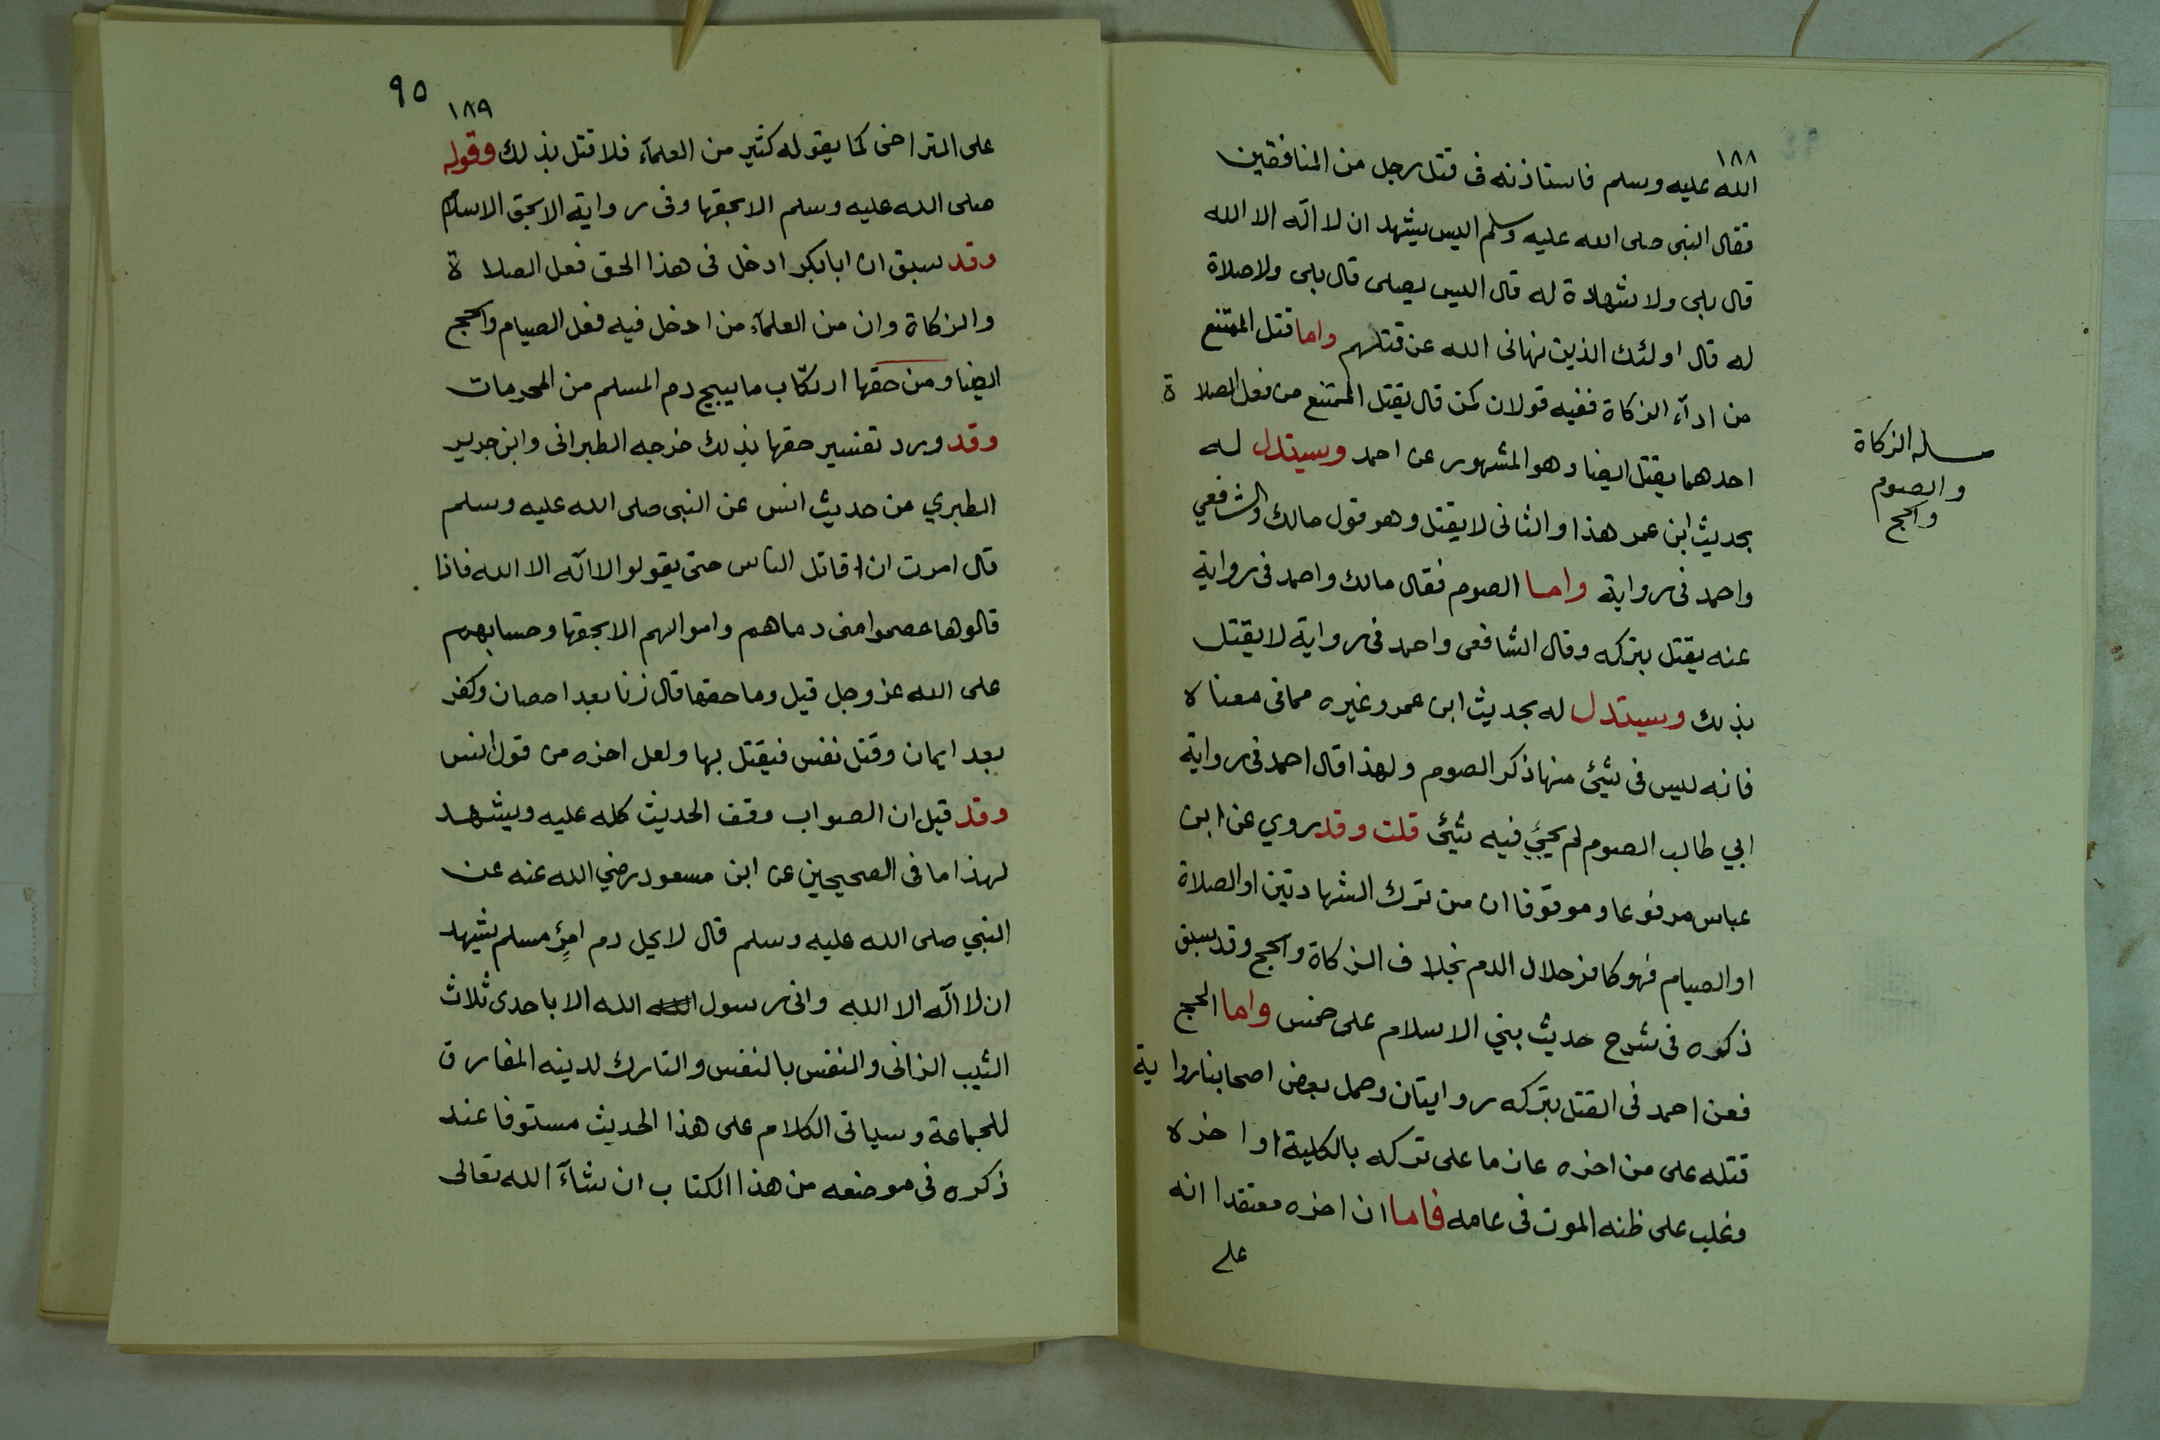 ١٨٨
الله عليه وسلم فاستاذنه فى قتل رجل من المنافقين
فقال النبى صلى الله عليه وسلم اليس يشهد ان لا اله الا الله
قال بلى ولا شهادة له قال اليس يصلى قال بلى ولا صلاة
له قال اولئك الذين نهانى الله عن قتلهم واما قتل الممتنع
من ادآء الزكاة ففيه قولان لمن قال يقتل الممتنع من فعل الصلاة
احدهما يقتل ايضا وهو المشهور عن احمد ويستدل له
بحديث ابن عمر هذا والثانى لا يقتل وهو قول مالك والشافعي
واحمد فى رواية واما الصوم فقال مالك واحمد فى رواية
عنه يقتل بتركه وقال الشافعى واحمد فى رواية لا يقتل
بذلك ويستدل له بحديث ابن عمر وغيره مما فى معناه
فانه ليس فى شيئ منها ذكر الصوم ولهذا قال احمد فى رواية
ابي طالب الصوم لم يجيء فيه شيئ قلت وقد روي عن ابن
عباس مرفوعا وموقوفا ان من ترك الشهادتين او الصلاة
او الصيام فهو كافر حلال الدم بخلاف الزكاة والحج وقد سبق
ذكره فى شرح حديث بني الاسلام على خمس واما الحج
فعن احمد فى القتل بتركه روايتان وحمل بعض اصحابنا رواية
قتله على من اخره عازما على تركه بالكلية او اخره
وغلب على ظنه الموت فى عامه فاما ان اخره معتقدا انه
على
مسئله الزكاة
والصوم
والحج
٩٥
١٨٩
على التراخى كما يقوله كثير من العلمآء فلا قتل بذلك وقوله
صلى الله عليه وسلم الا بحقها وفى رواية الا بحق الاسلام
وقد سبق ان ابا بكر ادخل فى هذا الحق فعل الصلاة
والزكاة وان من العلمآء من ادخل فيه فعل الصيام والحج
ايضا ومن حقها ارتكاب ما يبيح دم المسلم من المحرمات
وقد ورد تفسير حقها بذلك خرجه الطبرانى وابن جرير
الطبري من حديث انس عن النبى صلى الله عليه وسلم
قال امرت ان اقاتل الناس حتى يقولوا لا اله الا الله فاذا
قالوها عصموا منى دماهم واموالهم الا بحقها وحسابهم
على الله عز وجل قيل وما حقها قال زنا بعد احصان وكفر
بعد ايمان وقتل نفس فيقتل بها ولعل اخره من قول انس
وقد قيل ان الصواب وقف الحديث كله عليه ويشهد
لهذا ما فى الصحيحين عن ابن مسعود رضي الله عنه عن
النبي صلى الله عليه وسلم قال لا يحل دم امرئ مسلم يشهد
ان لا اله الا الله وانى رسول الله الله الا باحدى ثلاث
الثيب الزانى والنفس بالنفس والتارك لدينه المفارق
للجماعة وسياتى الكلام على هذا الحديث مستوفا عند
ذكره فى موضعه من هذا الكتاب ان شآء الله تعالى